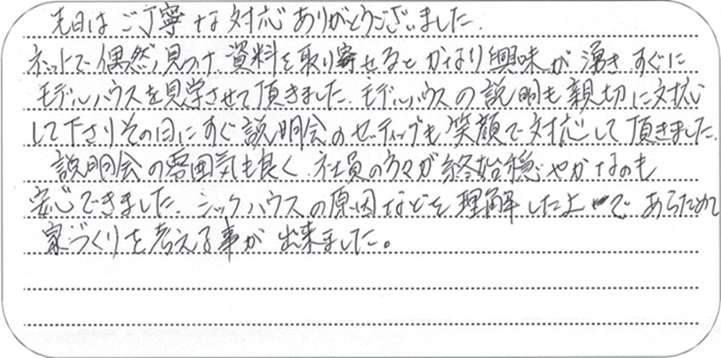 先日はご丁寧な対応ありがとうございました.
ネットで偶然見つけ資料を取り寄せるとかなり興味が湧きすぐに
モデルハウスを見学させて頂きました. モデルハウスの説明も親切に対応
して下さりその日にすぐ説明会のセッティングも笑顔で対応して頂きました.
説明会の雰囲気も良く 社員の方々が終始穏やかなのも
安心できました. シックハウスの原因などを理解した上で あらためて
家づくりを考える事が出来ました。